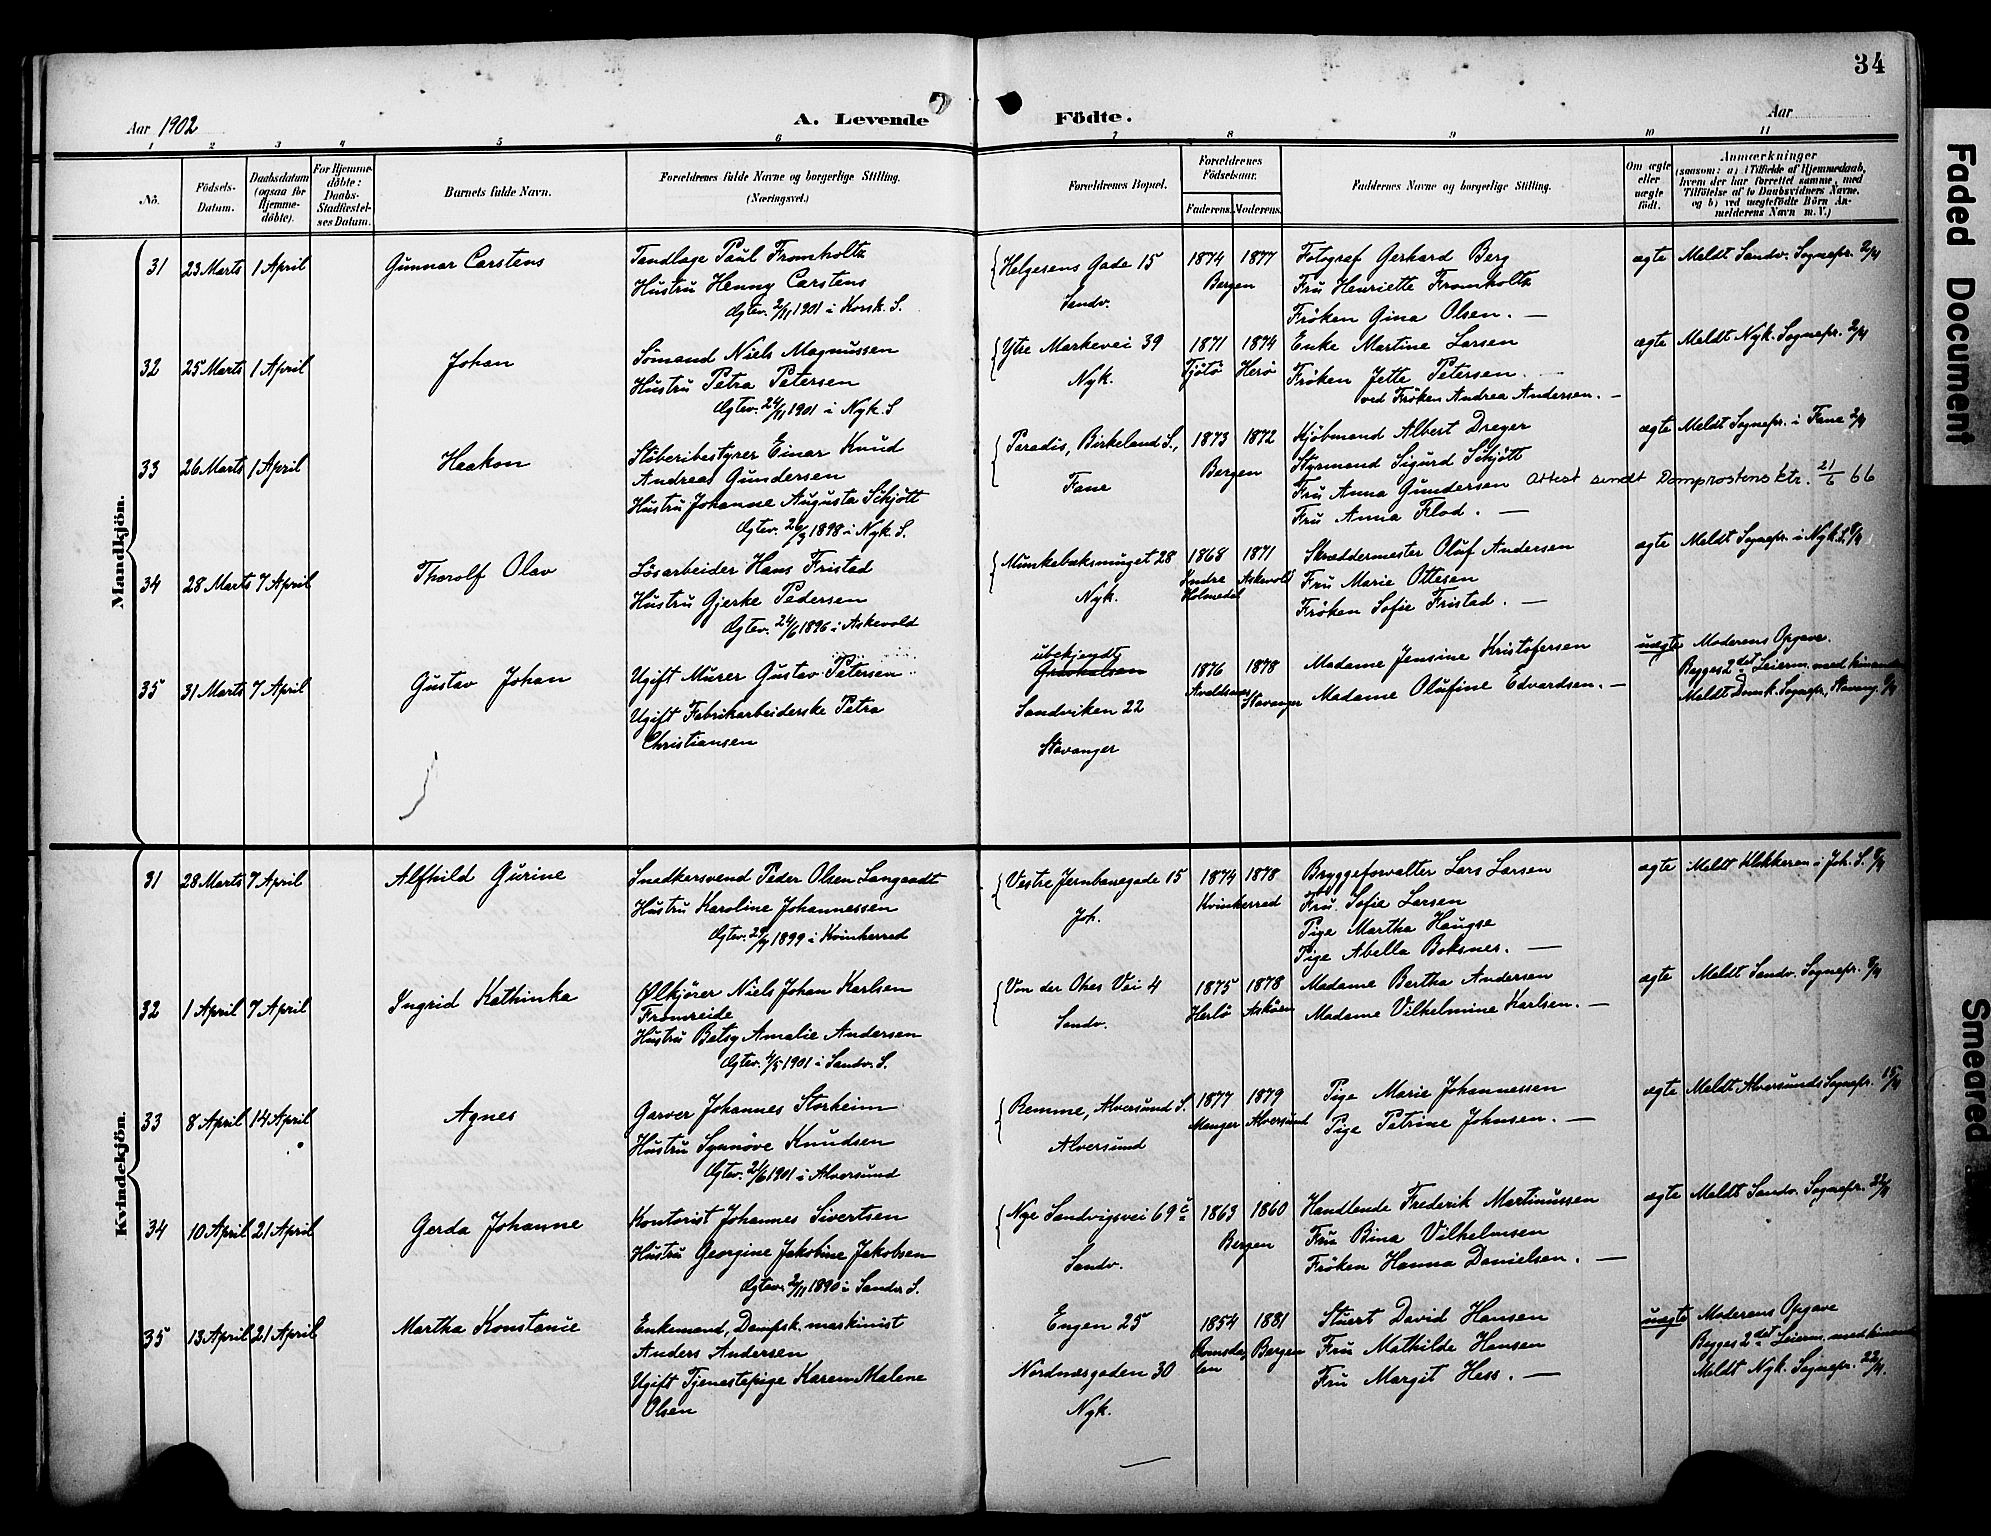 34
Aar 1902
A. Levende Födte.
Aar
1 2 3 4 5 6 7 8 9 10 11
No.
Födsels-Datum.
Daabsdatum (ogsaa for Hjemme-döbte).
For Hjemme-döbte: Daabs-Stadfæstel-ses Datum.
Barnets fulde Navn.
Forældrenes fulde Navne og borgerlige Stilling. (Næringsvei.)
Forældrenes Bopæl.
Forældrenes Födselsaar.
Faderens. Moderens.
Faddernes Navne og borgerlige Stilling.
Om ægte eller uægte födt.
Anmærkninger
(saasom: a) i Tilfælde af Hjemmedaab, hvem der har forrettet samme, med Tilföielse af to Daabsvidners Navne, og b) ved uægtefödte Börn An-melderens Navn m. V.)
Mandkjön.
31 23 Marts 1 April Gunnar Carstens
Tandlæge Paul Fromholtz
Hustru Henny Carstens
Ægtev. 2/11 1901 i Korsk. S.
Helgesens Gade 15
Sandv.
1874 1877
Bergen
Fotograf Gerhard Berg
Fru Henriette Fromholtz
Fröken Gina Olsen. —
ægte Meldt Sandv. Sognepr. 2/4
32 25 Marts 1 April Johan
Sömand Niels Magnussen
Hustru Petra Petersen
Ægtev. 24/11 1901 i Nyk. S
Ytre Markevei 39
Nyk.
1871 1874
Tjötö Herö
Enke Martine Larsen
Fröken Jette Petersen.
ved Fröken Andrea Andersen. —
ægte Meldt Nyk. Sognepr. 2/4
33 26 Marts 1 April Haakon
Stöberibestyrer Einar Knud
Andreas Gundersen
Hustru Johanne Augusta Schjött
Ægtev. 1898 i Nyk. S.
Paradis, Birkeland S.,
Fane
1873 1872
Bergen
Kjöbmand Albert Dreyer
Styrmand Sigurd Schjött
Fru Anna Gundersen
Fru Anna Flod. —
ægte Meldt Sognepr. i Fane 2/4
Attest sendt Domprostens ktr. 21/6 66
34 28 Marts 7 April Thorolf Olav
Lösarbeider Hans Fristad
Hustru Gjerke Pedersen
Ægtev. 24/6 1896 i Askevold
Munkebæksmuget 28
Nyk.
1868 1871
Indre Holmedal Askevold
Skræddermester Oluf Andersen
Fru Marie Ottesen
Fröken Sofie Fristad. —
ægte Meldt Sognepr. i Nyk. S. 8/4
35 31 Marts 7 April Gustav Johan
Ugift Murer Gustav Petersen
Ugift Fabrikarbeiderske Petra
Christiansen
ubekjendt
Sandviken 22
Stavanger
1876 1878
Avaldsnes Stavanger
Madame Jensine Kristofersen
Madame Olufine Edvardsen. —
uægte Moderens Opgave.
Begges 2det Leierm. med hinanden
Meldt Domk. Sognepr., Stavang. 8/4
Kvindekjön.
31 28 Marts 7 April Alfhild Gurine
Snedkersvend Peder Olsen Langaadt
Hustru Karoline Johannessen
Ægtev. 1899 i Kvinherred
Vestre Jernbanegade 15
Joh.
1874 1878
Kvinherred
Bryggeforvalter Lars Larsen
Fru Sofie Larsen
Pige Martha Haugse
Pige Abella Boksnes. —
ægte Meldt Klokkeren i Joh. S. 8/4
32 1 April 7 April Ingrid Kathinka
Ølkjörer Niels Johan Karlsen
Fromreide
Hustru Betsy Amalie Andersen
Ægtev. 4/5 1901 i Sandv. S.
Von der Ohes Vei 4
Sandv.
1875 1878
Herlö Asköen
Madame Bertha Andersen
Madame Vilhelmine Karlsen. —
ægte Meldt Sandv. Sognepr. 8/4
33 8 April 14 April Agnes
Garver Johannes Storheim
Hustru Synnöve Knudsen
Ægtev. 21/6 1901 i Alversund
Remme, Alversund S.
Alversund
1877 1879
Manger Alversund
Pige Marie Johannessen
Pige Petrine Johnsen. —
ægte Meldt Alversunds Sognepr. 15/4
34 10 April 21 April Gerda Johanne
Kontorist Johannes Sivertsen
Hustru Georgine Jakobine Jakobsen
Ægtev. 2/11 1890 i Sandv. S.
Nye Sandvigsvei 69 c
Sandv.
1863 1860
Bergen
Handlende Frederik Martinussen
Fru Bina Vilhelmsen
Fröken Hanna Danielsen. —
ægte Meldt Sandv. Sognepr. 22/4
35 13 April 21 April Martha Konstanse
Enkemand, Dampsk. maskinist
Anders Andersen
Ugift Tjenestepige Karen Malene
Olsen
Engen 25
Nordnæsgaden 30
Nyk.
1854 1881
Romsdalen Bergen
Stuert David Hansen
Fru Mathilde Hansen
Fru Margit Hess. —
uægte Moderens Opgave
Begges 2det Leierm. med hinand.
Meldt Nyk. Sognepr. 22/4.
Faded Document
Smeared